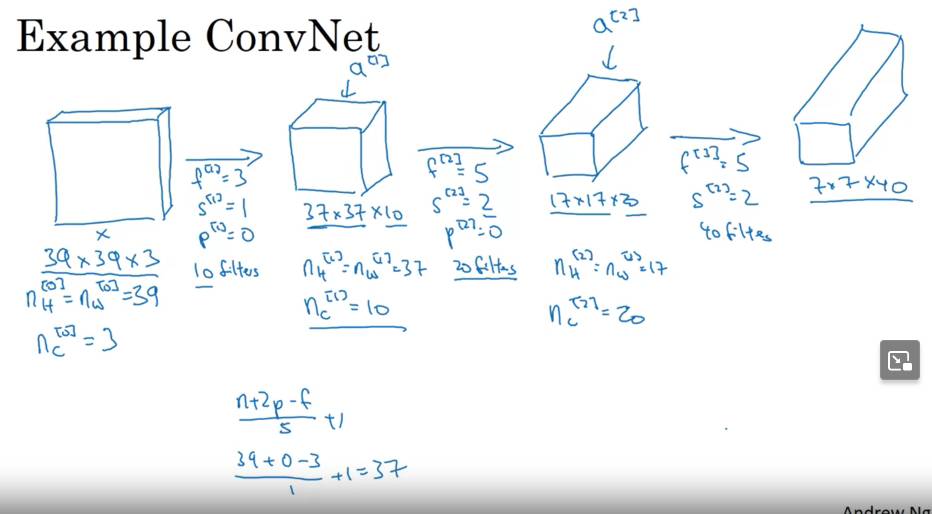 Example ConvNet
a^[1]
a^[2]
x
39 × 39 × 3
n_H^[0] = n_W^[0] = 39
n_C^[0] = 3
f^[1] = 3
s^[1] = 1
p^[1] = 0
10 filters
37 × 37 × 10
n_H^[1] = n_W^[1] = 37
n_C^[1] = 10
f^[2] = 5
s^[2] = 2
p^[2] = 0
20 filters
17 × 17 × 20
n_H^[2] = n_W^[2] = 17
n_C^[2] = 20
f^[3] = 5
s^[3] = 2
40 filters
7 × 7 × 40
n+2p-f
s
+1
39+0-3
1
+1 = 37
Andrew Ng